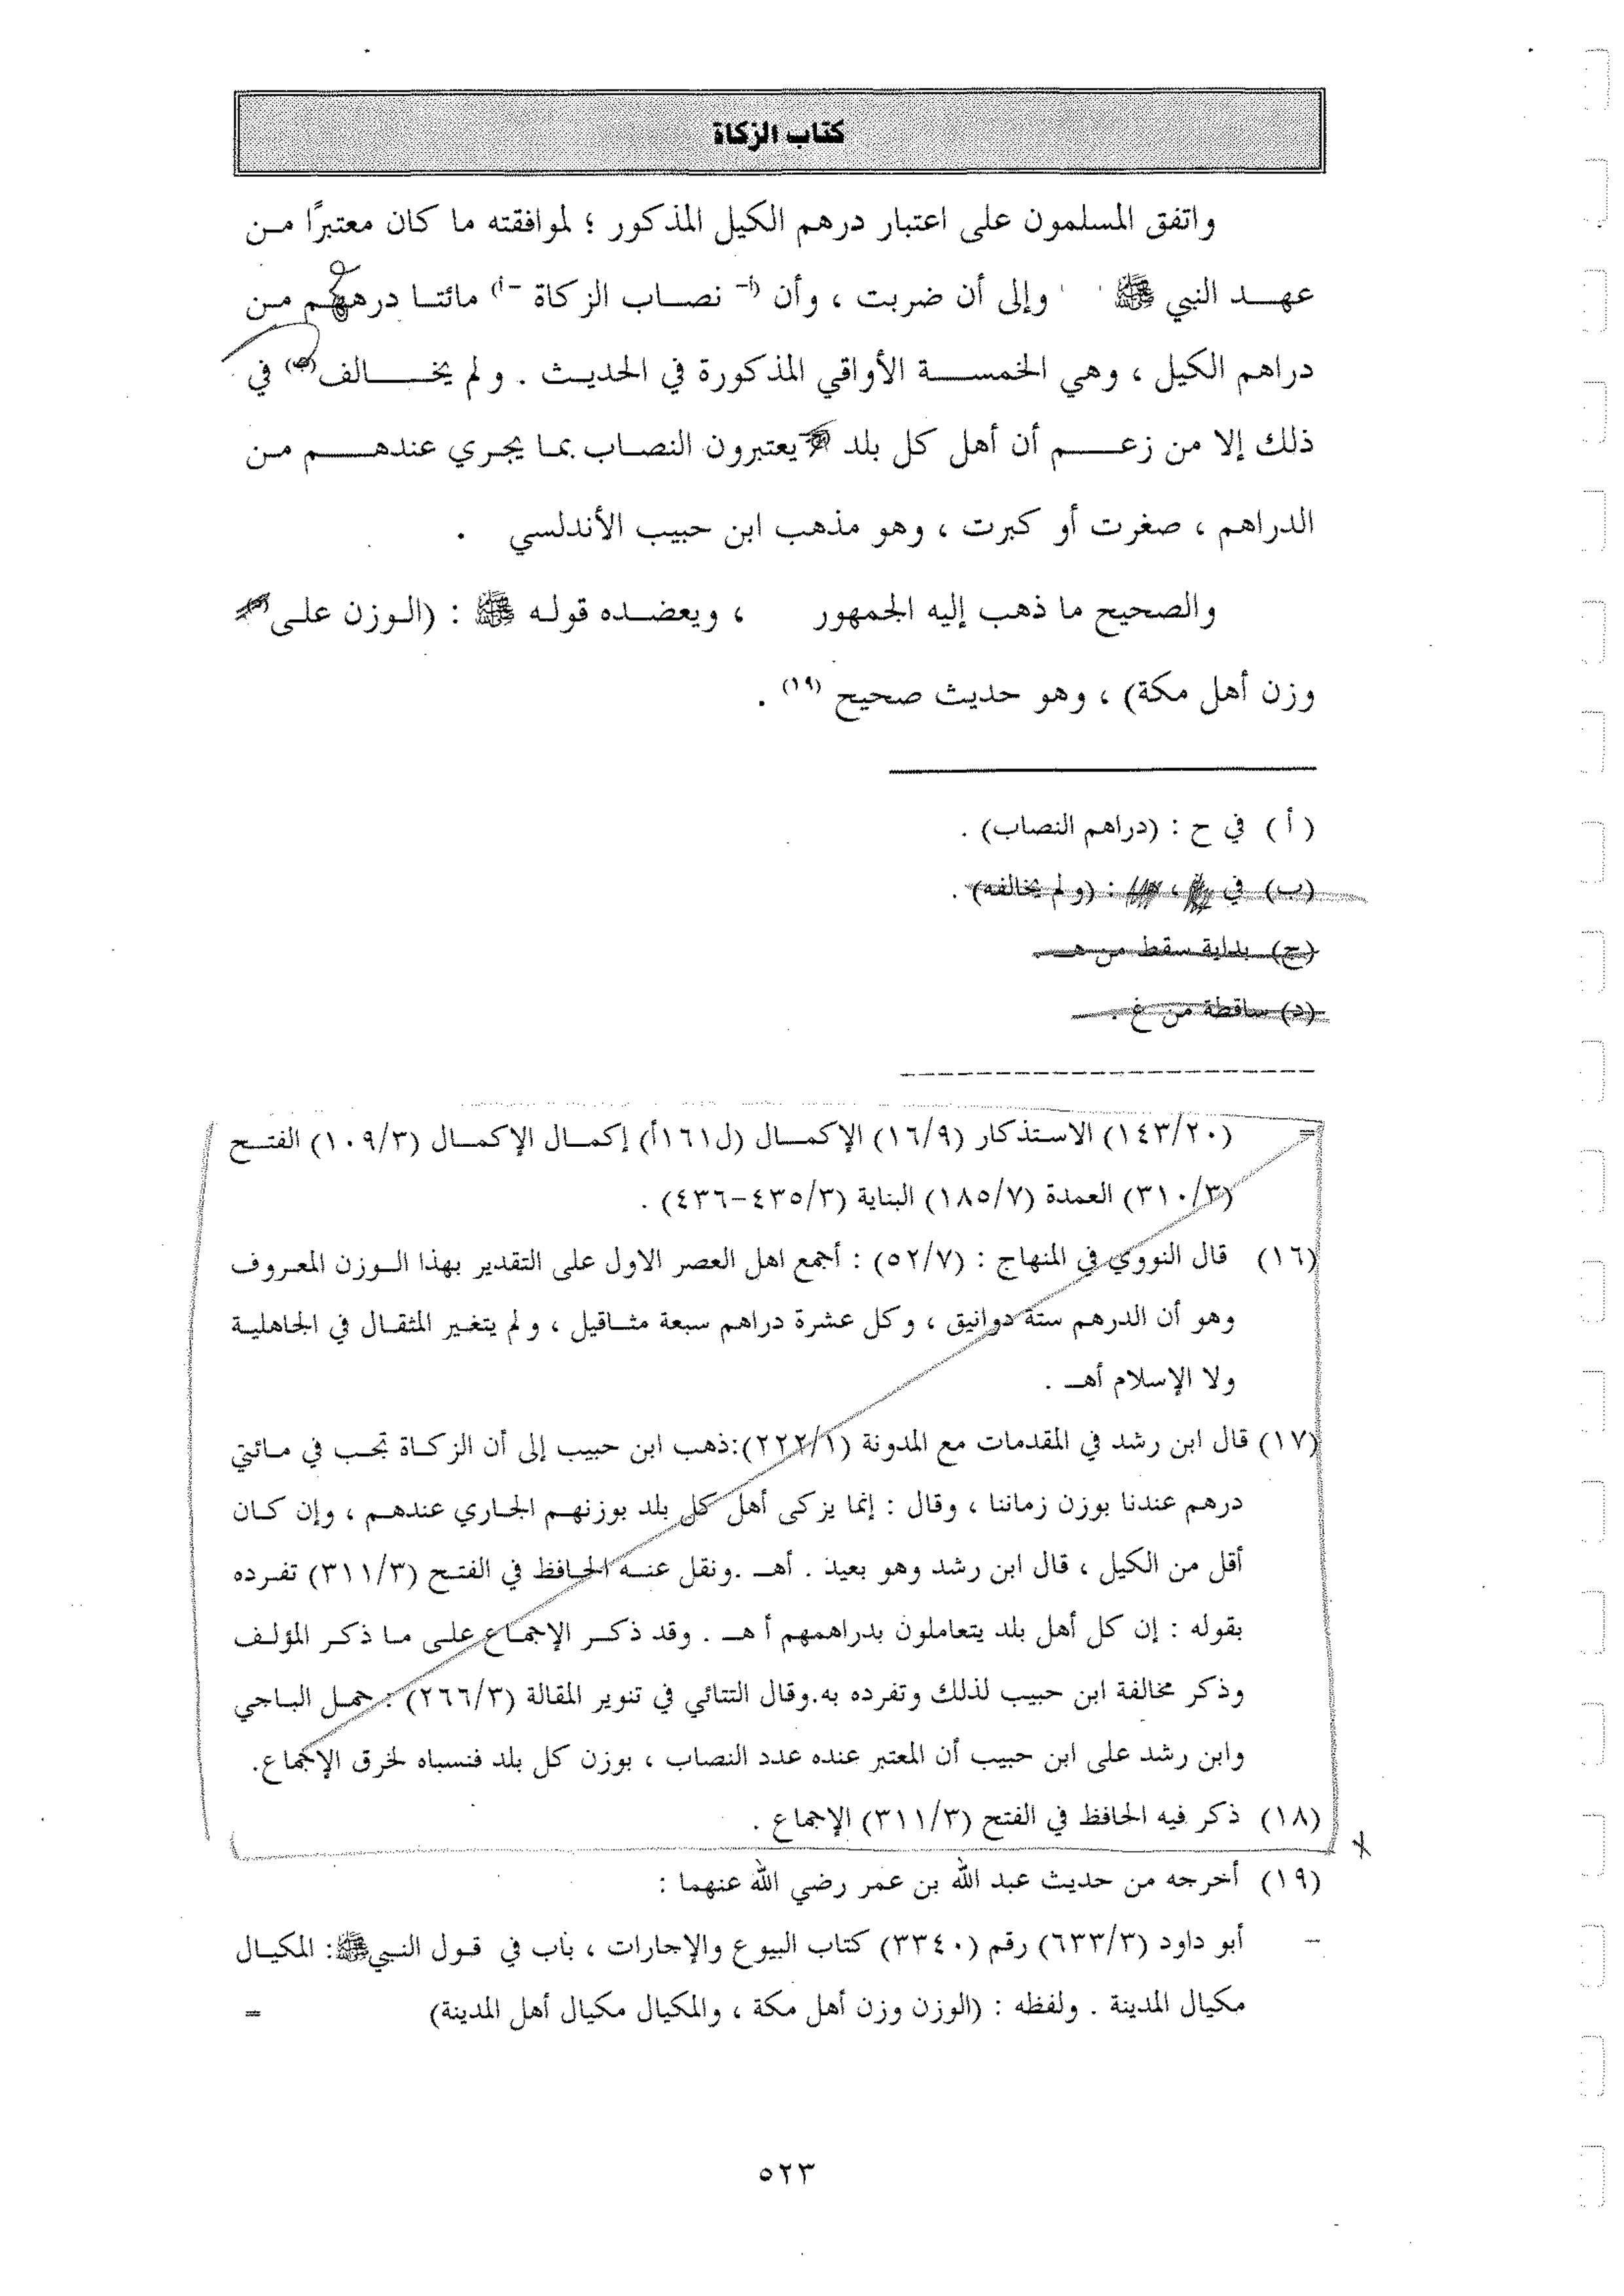 كتاب الزكاة
واتفق المسلمون على اعتبار درهم الكيل المذكور ؛ لموافقته ما كان معتبرًا من
عهد النبي ﷺ وإلى أن ضربت ، وأن (أ- نصاب الزكاة -أ) مائتا درهم من
دراهم الكيل ، وهي الخمسة الأواقي المذكورة في الحديث . ولم يخالف في
ذلك إلا من زعم أن أهل كل بلد يعتبرون النصاب بما يجري عندهم من
الدراهم ، صغرت أو كبرت ، وهو مذهب ابن حبيب الأندلسي .
والصحيح ما ذهب إليه الجمهور ، ويعضده قوله ﷺ : (الوزن على
وزن أهل مكة) ، وهو حديث صحيح (١٩) .
(أ) في ح : (دراهم النصاب) .
(ب) في ، : (ولم يخالفه) .
(ج) بداية سقط من هـ .
(د) ساقطة من غ .
= (١٤٣/٢٠) الاستذكار (١٦/٩) الإكمال (ل١٦١أ) إكمال الإكمال (١٠٩/٣) الفتح
(٣١٠/٣) العمدة (١٨٥/٧) البناية (٤٣٥/٣-٤٣٦) .
(١٦) قال النووي في المنهاج : (٥٢/٧) : أجمع اهل العصر الاول على التقدير بهذا الوزن المعروف
وهو أن الدرهم ستة دوانيق ، وكل عشرة دراهم سبعة مثاقيل ، ولم يتغير المثقال في الجاهلية
ولا الإسلام أهـ .
(١٧) قال ابن رشد في المقدمات مع المدونة (٢٢٢/١):ذهب ابن حبيب إلى أن الزكاة تجب في مائتي
درهم عندنا بوزن زماننا ، وقال : إنما يزكى أهل كل بلد بوزنهم الجاري عندهم ، وإن كان
أقل من الكيل ، قال ابن رشد وهو بعيد . أهـ .ونقل عنه الحافظ في الفتح (٣١١/٣) تفرده
بقوله : إن كل أهل بلد يتعاملون بدراهمهم أ هـ . وقد ذكر الإجماع على ما ذكر المؤلف
وذكر مخالفة ابن حبيب لذلك وتفرده به.وقال التتائي في تنوير المقالة (٢٦٦/٣) : حمل الباجي
وابن رشد على ابن حبيب أن المعتبر عنده عدد النصاب ، بوزن كل بلد فنسباه لخرق الإجماع.
(١٨) ذكر فيه الحافظ في الفتح (٣١١/٣) الإجماع .
(١٩) أخرجه من حديث عبد الله بن عمر رضي الله عنهما :
– أبو داود (٦٣٣/٣) رقم (٣٣٤٠) كتاب البيوع والإجارات ، باب في قول النبيﷺ: المكيال
مكيال المدينة . ولفظه : (الوزن وزن أهل مكة ، والمكيال مكيال أهل المدينة) =
٥٢٣